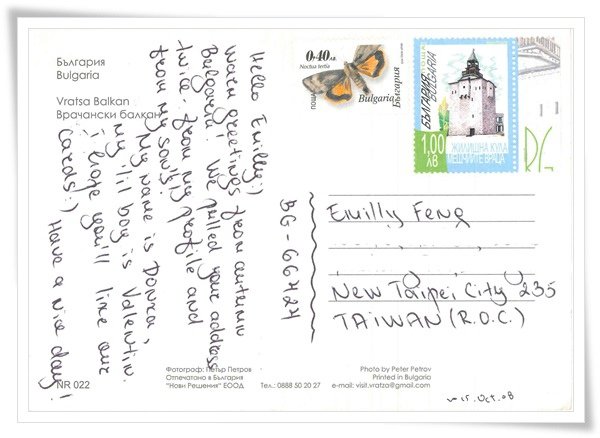 България
Bulgaria
Vratsa Balkan
Врачански балкан
Hello Emilly:)
warm greetings from autumn
Bulgaria! We pulled your address
twice - from my profile and
from my son's!
My name is Donka,
my lil boy is Valentin.
I hope you'll like our
cards:) Have a nice day!
BG-66424
0,40 лв.
поща
Bulgaria
България
БЪЛГАРИЯ
BULGARIA
1,00
ЛВ
ЖИЛИЩНА КУЛА
МЕЩЧИИТЕ ВРАЦА
Emilly Feng
New Taipei City 235
TAIWAN (R.O.C.)
NR 022
Фотограф: Петър Петров
Отпечатано в България
"Нови Решения" ЕООД
Тел.: 0888 50 20 27
Photo by Peter Petrov
Printed in Bulgaria
e-mail: visit.vratza@gmail.com
Oct. 08